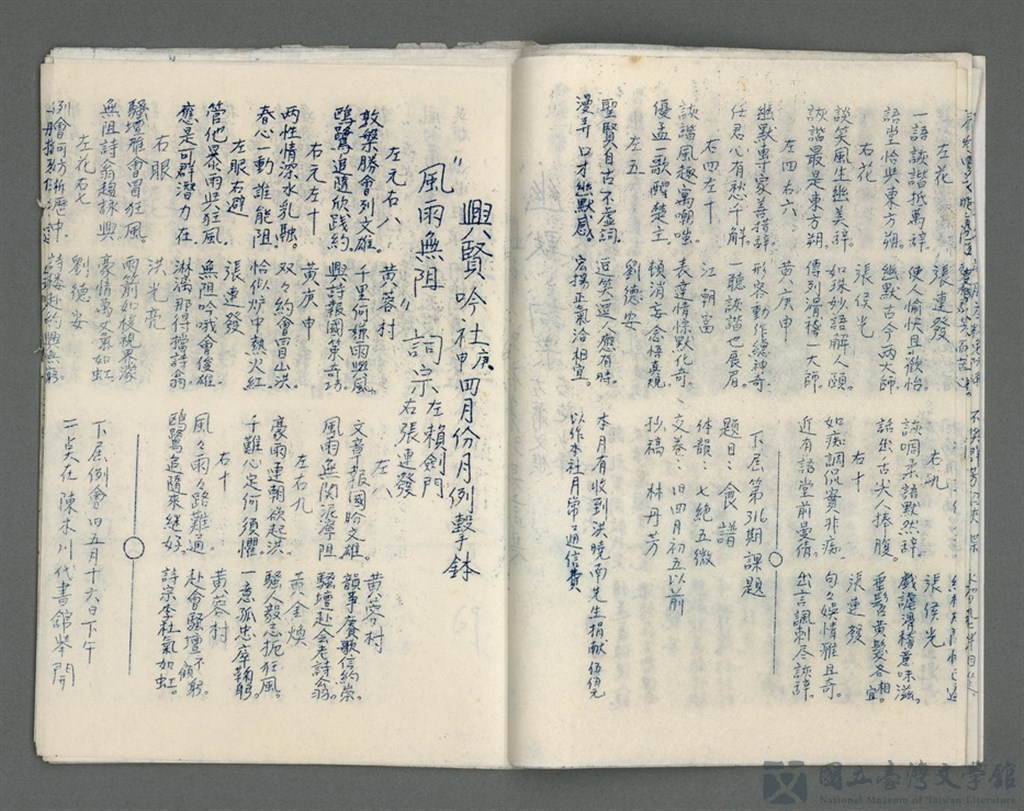 左花　張連發
一語詼諧抵萬辭。使人愉快且歡怡
語堂恰與東方朔。幽默古今兩大師
右花　張侯光
談笑風生幽美辭。如珠妙語解人頤。
詼諧最是東方朔。傳列滑稽一大師
左四右六　黃庚申
幽默專家善措辭　形容動作總神奇。
任君心有愁千解　一聽詼諧也展眉
右四左十　江朝富
詼諧風趣寓嘲嗤。表達情悰默化奇。
優孟一歌醒楚主。頓消妄念悟真規
左五　劉德安
聖賢自古不虛詞。逗笑還人應有時。
漫弄口才幽默感　宏揚正氣洽相宜。
右九　張侯光
詼啁柔語默然辭。戲謔滑稽意味滋。
話出古尖人捧腹。垂髫黃髮各相宜
右十　張連發
如痴調侃實非痴。句々娛情雅且奇。
近有語堂前曼倩。出言諷刺尽詼辭。
下居第316期課題
題目：食譜
体韻：七絶五微
交卷：旧四月初五以前
抄稿　林丹芳
本月有收到洪曉南先生捐献伍佰元
以作本社月常通信費
興賢吟社庚申四月份月例擊鉢
“風雨無阻” 詞宗 左賴劍門 右張連發
左元右八　黃蓉村
敦槃勝會列文雄。千里何嫌雨與風
鷗鷺追隨欣踐約。興詩報國策奇功
右元左十　黃庚申
兩性情深水乳融。双々約會冒山洪。
春心一動誰能阻　恰似炉中熱火紅
左眼右避　張連發
管他暴雨與狂風。無阻吟哦會俊雄。
應是可群潛力在　淋漓那得擋詩翁
右眼　洪光亮
騷壇雅會冒狂風。雨箭如梭視界濛
無阻詩翁趨詠興　豪情萬丈氣如虹
左花右七　劉德安
左八　黃蓉村
文章報國盼文雄。韻爭賡歌信約崇
風雨無関泥濘阻　騷壇赴会老詩翁。
左右九　黃金煥
豪雨連朝欲起洪。騷人毅志抗狂風。
千難心定何須懼　一意孤忠庠鞠躬
右十　黃蓉村
風々雨々路難通　赴會騷壇不顧躬。
鷗鷺追隨來継好　詩宗李杜氣如虹。
下居例會四五月十六日下午
二点在陳木川代書舘擧開